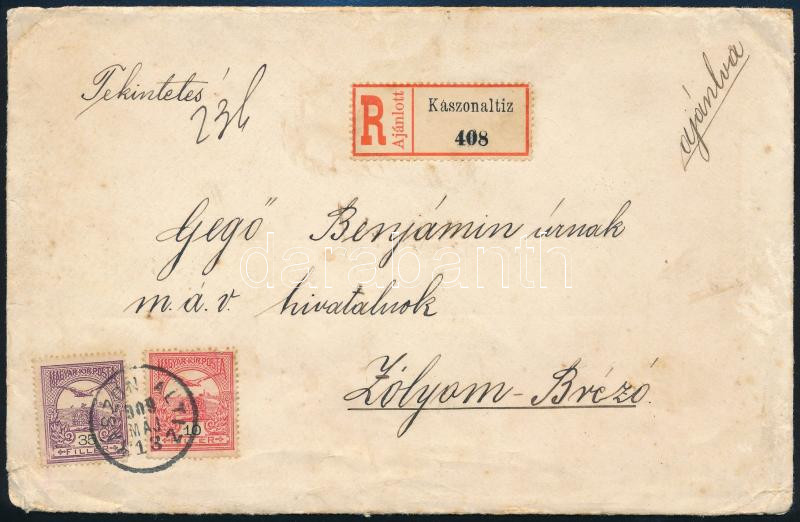 Tekintetes
23
R
Ajánlott
Kászonaltiz
408
ajánlva
Gegő Benjámin úrnak
m.á.v. hivatalnok
Zólyom-Brézó
darabanth
MAGYAR·KIR·POSTA
35
FILLÉR
MAGYAR·KIR·POSTA
10
FILLÉR
KÁSZON ALTIZ
909
MÁJ
13